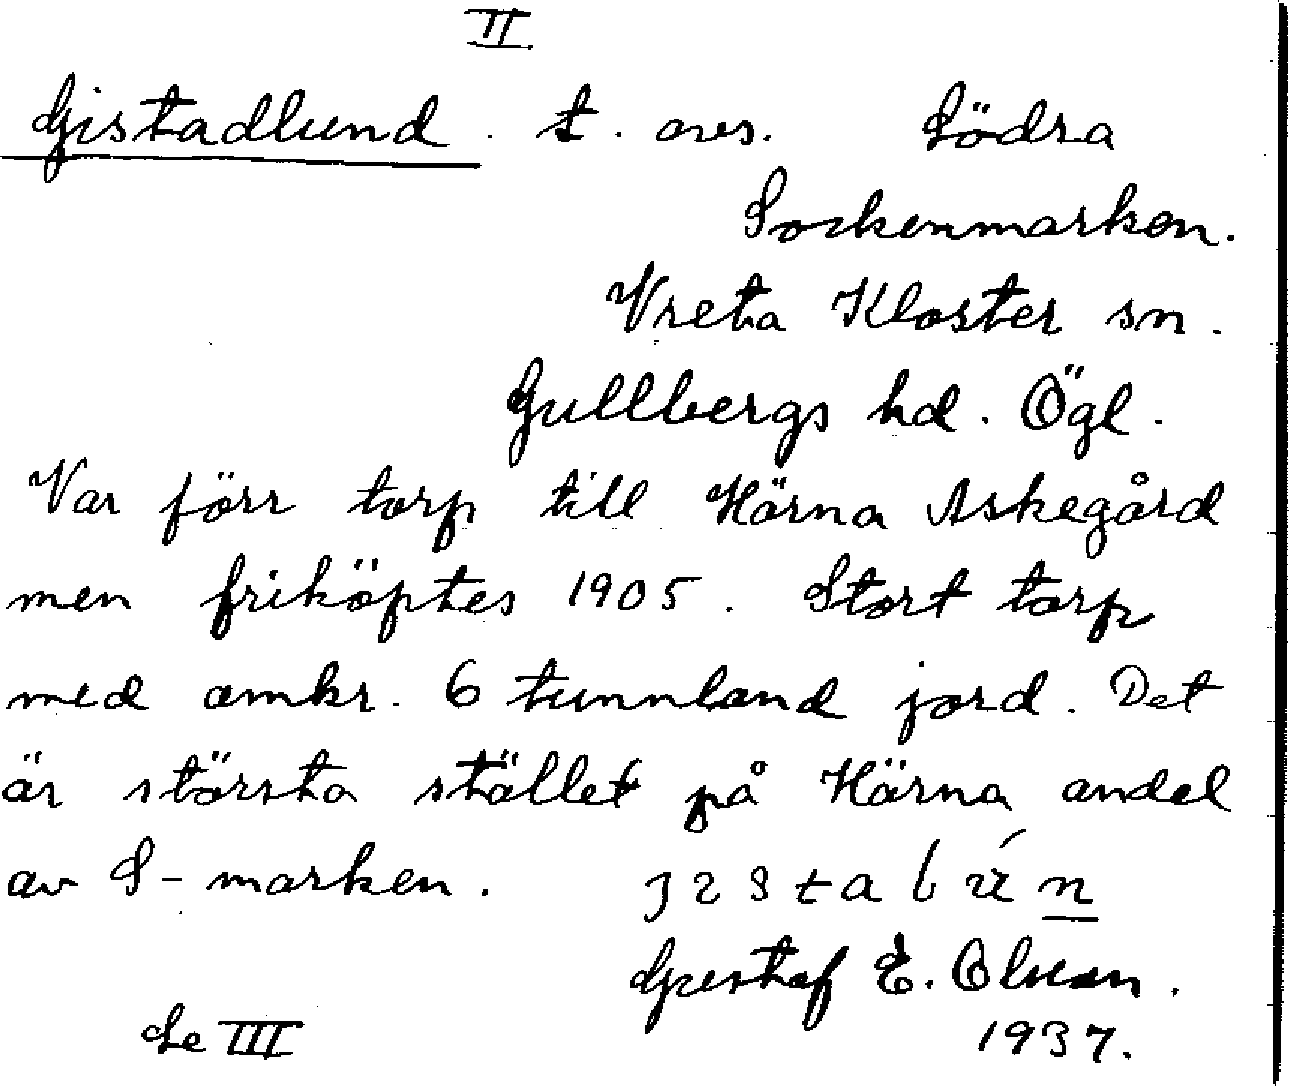 II
Gistadlund. t. avs. Södra
Sockenmarken.
Vreta Kloster sn.
Gullbergs hd. Ögl.
Var förr torp till Härna Askegård
men friköptes 1905. Stort torp
med omkr. 6 tunnland jord. Det
är största stället på Härna andel
av S-marken.
Gustaf E. Olsson.
Se III 1937.